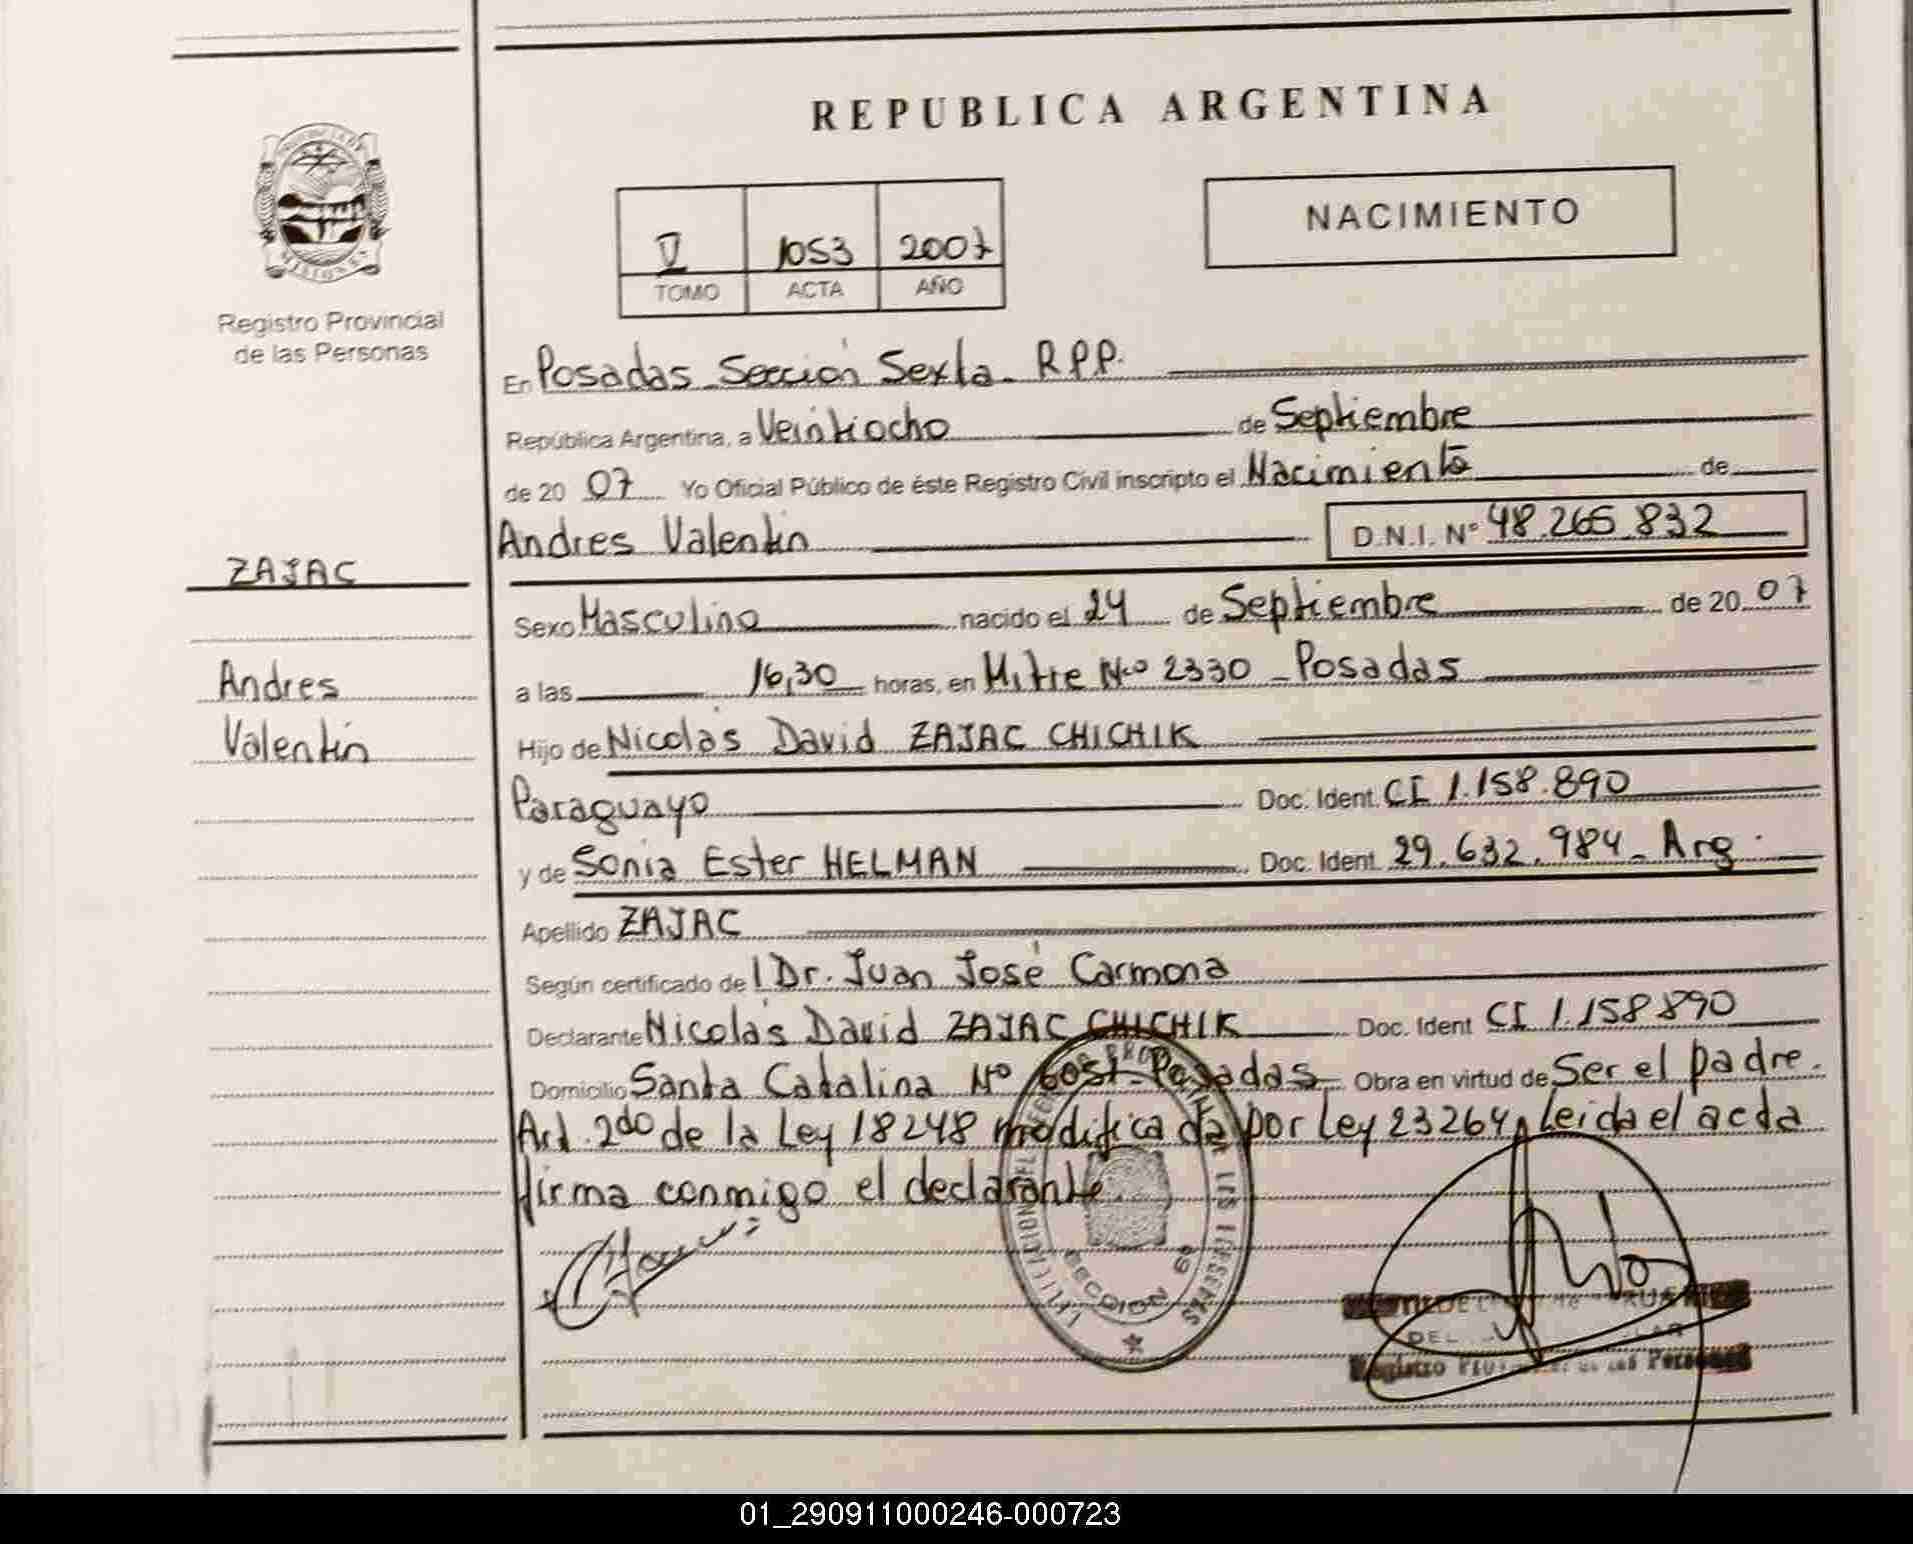 REPUBLICA ARGENTINA
NACIMIENTO
V 1053 2007
TOMO ACTA AÑO
MISIONES
Registro Provincial
de las Personas
En Posadas Sección Sexta - R.P.P.
República Argentina, a Veintiocho de Septiembre
de 20 07 Yo Oficial Público de éste Registro Civil inscripto el Nacimiento de
Andres Valentin D.N.I. Nº 48.265.832
ZAJAC
Sexo Masculino nacido el 24 de Septiembre de 20 07
Andres
a las 16,30 horas, en Mitre Nº 2330 - Posadas
Valentin
Hijo de Nicolás David ZAJAC CHICHIK
Paraguayo Doc. Ident. CI 1.158.890
y de Sonia Ester HELMAN Doc. Ident. 29.632.984 - Arg.
Apellido ZAJAC
Según certificado de l Dr. Juan José Carmona
Declarante Nicolás David ZAJAC CHICHIK Doc. Ident CI 1.158.890
Domicilio Santa Catalina Nº 6051 - Posadas - Obra en virtud de Ser el padre.
Art. 2do de la Ley 18248 modificada por Ley 23264, Leida el acta
firma conmigo el declarante.
SECCION 6ª
Registro Personas
01_290911000246-000723